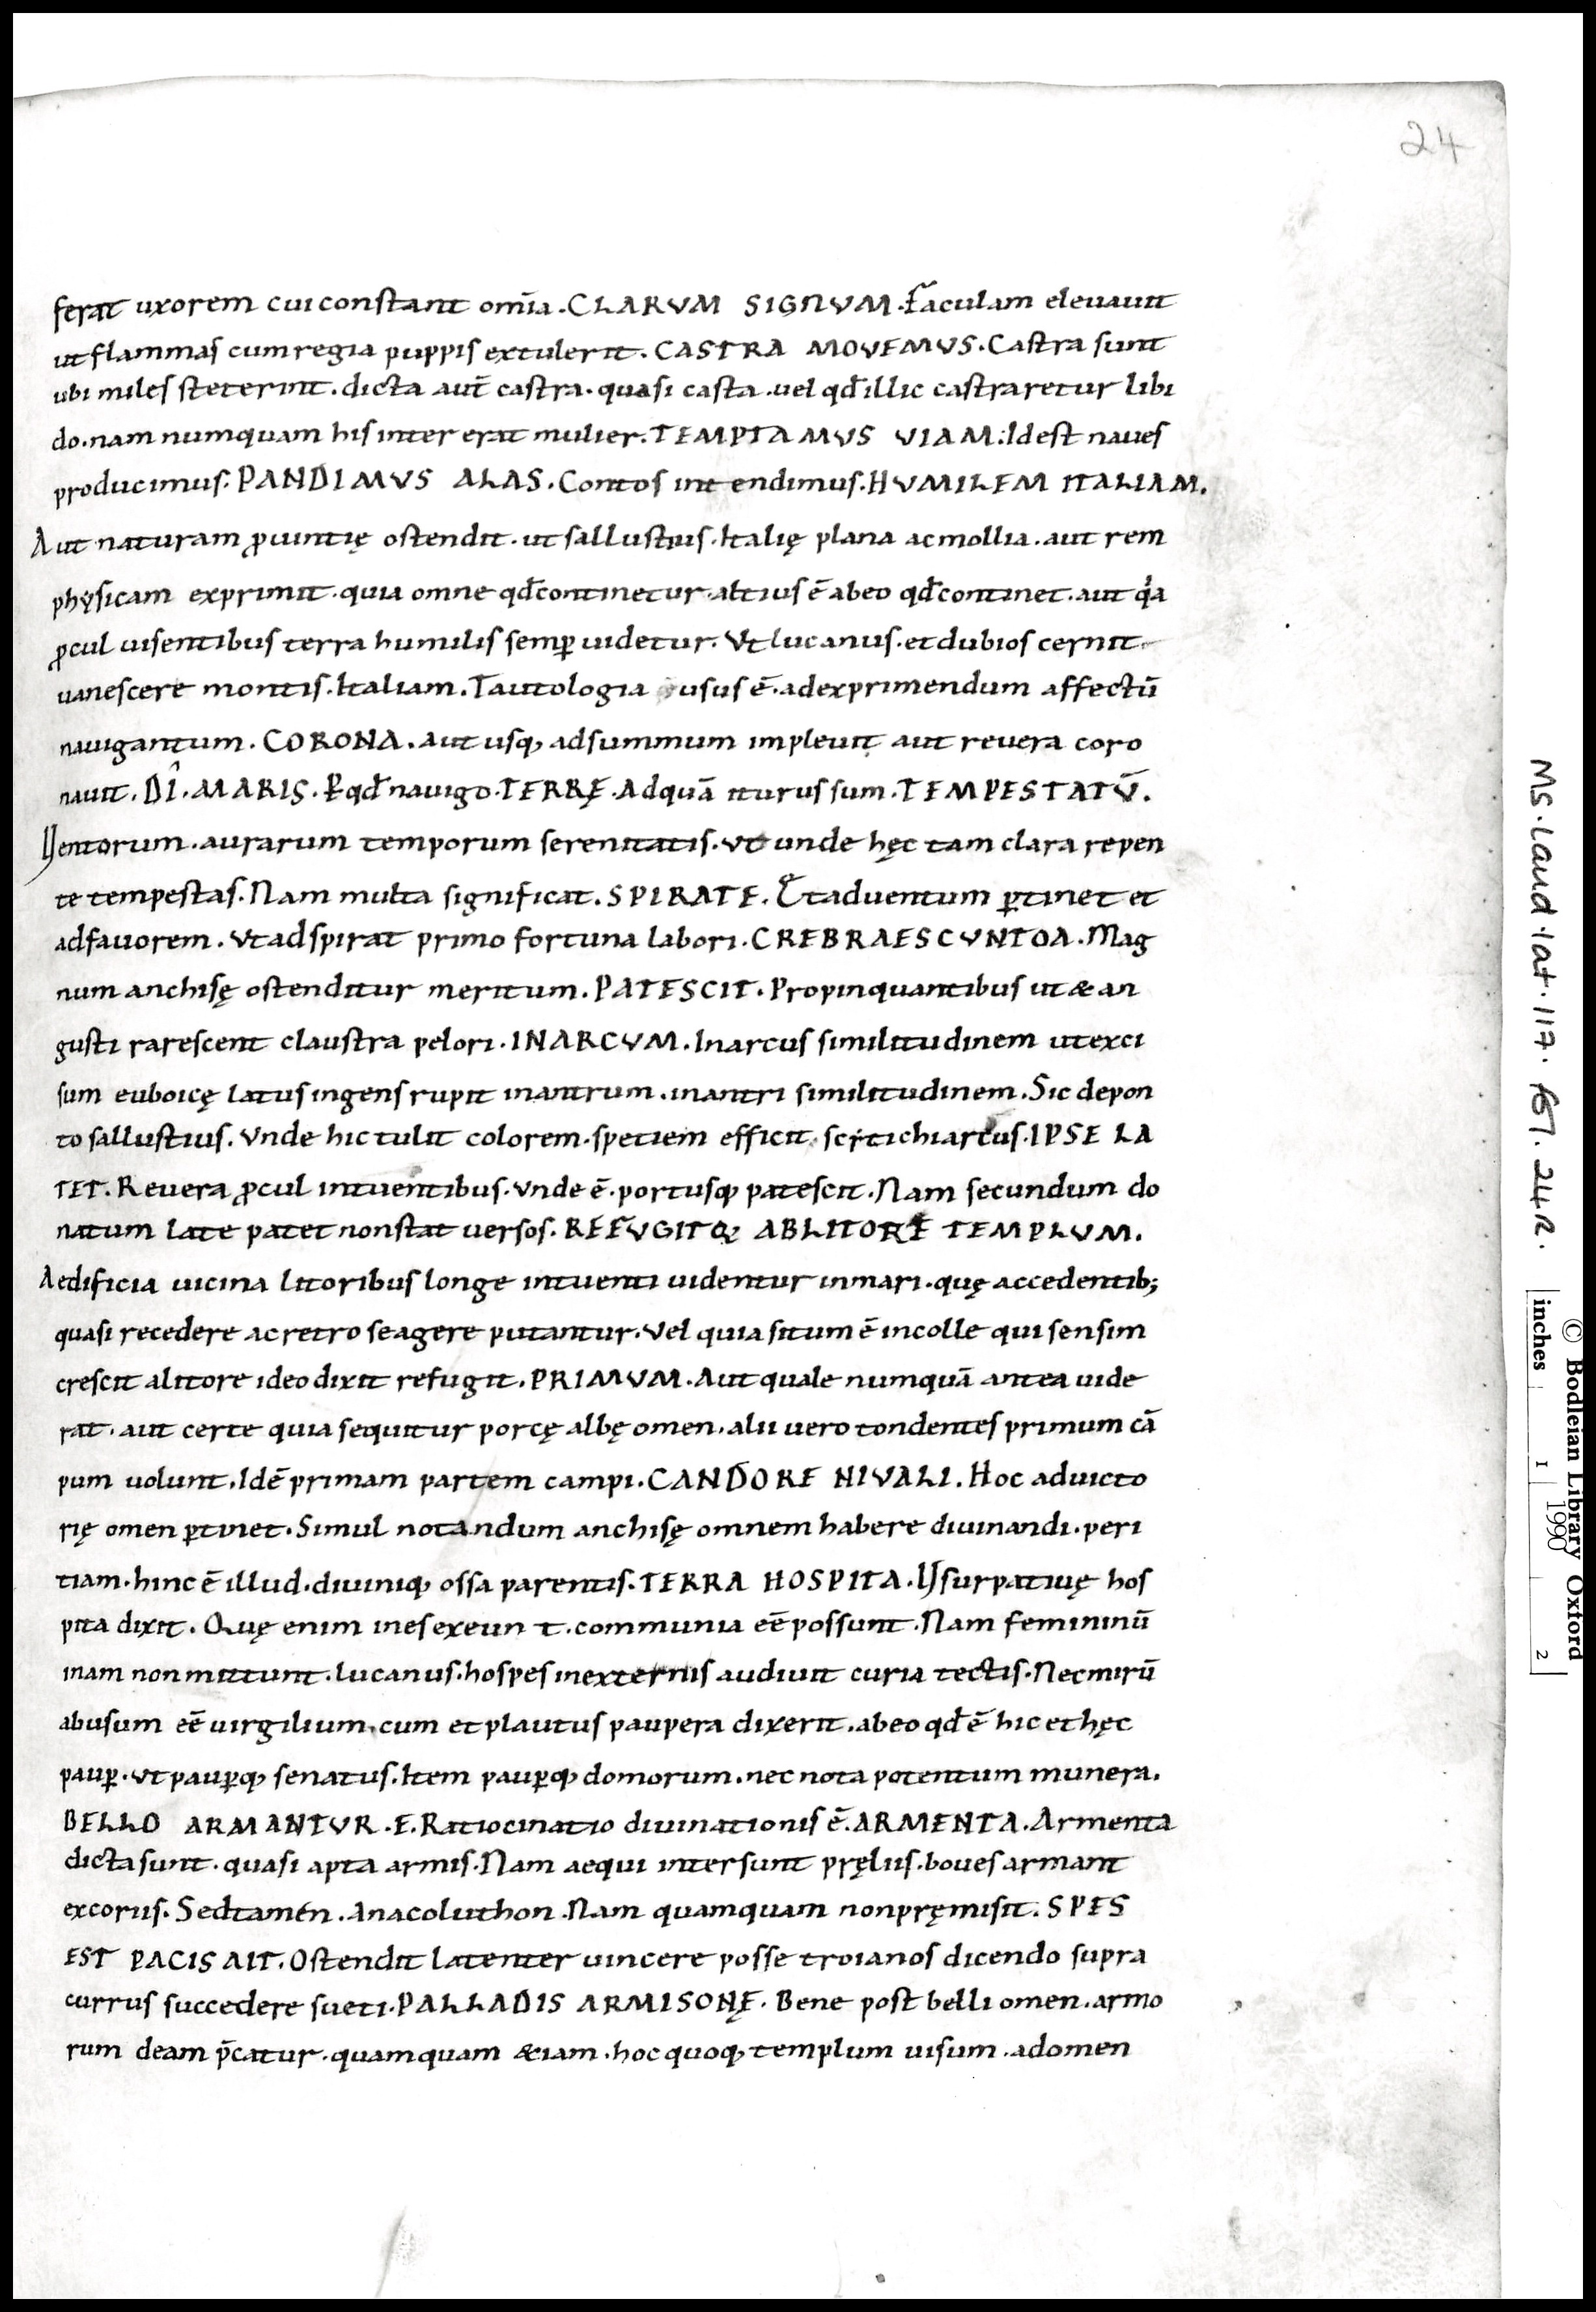 24
ferat uxorem cui constant om̅ia. CLARVM SIGNVM. Faculam eleuauit
ut flammas cum regia puppis extulerit. CASTRA MOVEMVS. Castra sunt
ubi miles steterint. dicta aut̅ castra. quasi casta. uel qđ illic castraretur libi
do. nam numquam his inter erat mulier. TEMPTAMVS VIAM. Id est naues
producimus. PANDIMVS ALAS. Contos intendimus. HVMILEM ITALIAM.
Aut naturam ꝓuintię ostendit. ut sallustius. Italię plana ac mollia. aut rem
physicam exprimit. quia omne qđ continetur. altius ē ab eo qđ continet. aut qͥa
ꝓcul uisentibus terra humilis semꝑ uidetur. Vt lucanus. et dubios cernit
uanescere montis. Italiam. Tautologia usus ē. ad exprimendum affectū
nauigantum. CORONA. aut usq; ad summum impleuit aut reuera coro
nauit. DI. MARIS. P qđ nauigo. TERRĘ. Ad quā iturus sum. TEMPESTATV̄.
Ventorum. aurarum temporum serenitatis. Vt unde hęc tam clara repen
te tempestas. Nam multa significat. SPIRATE. Et ad uentum ꝑtinet et
ad fauorem. Vt adspirat primo fortuna labori. CREBRAESCVNT OA. Mag
num anchisę ostenditur meritum. PATESCIT. Propinquantibus ut & an
gusti rarescent claustra pelori. IN ARCVM. In arcus similitudinem ut exci
sum euboicę latus ingens rupit in antrum. in antri similitudinem. Sic de pon
to sallustius. Vnde hic tulit colorem. spetiem efficit. scrtichi arcus. IPSE LA
TET. Reuera ꝓcul intuentibus. Vnde ē. portusq; patescit. Nam secundum do
natum late patet non stat uersos. REFVGITQ; AB LITORE TEMPLVM.
Aedificia uicina litoribus longe intuenti uidentur in mari. quę accedentib;
quasi recedere ac retro se agere putantur. Vel quia situm ē in colle qui sensim
crescit a litore ideo dixit refugit. PRIMVM. Aut quale numquā antea uide
rat. aut certe quia sequitur porcę albę omen. alii uero tondentes primum cā
pum uolunt. Idē primam partem campi. CANDORE NIVALI. Hoc ad uicto
rię omen ꝑtinet. Simul notandum anchisę omnem habere diuinandi. peri
tiam. hinc ē illud. diuiniq; ossa parentis. TERRA HOSPITA. Vsurpatiuę hos
pita dixit. Quę enim in es exeunt. communia eē possunt. Nam femininū
in am non mittunt. lucanus. hospes in externis audiuit curia tectis. Nec mirū
abusum eē uirgilium. cum et plautus paupera dixerit. ab eo qđ ē hic et hęc
pauꝑ. Vt pauꝑq; senatus. Item pauꝑq; domorum. nec nota potentum munera.
BELLO ARMANTVR. E. Ratiocinatio diuinationis ē. ARMENTA. Armenta
dicta sunt. quasi apta armis. Nam aequi inter sunt pręliis. boues armant
ex coriis. Sed tamen. Anacoluthon. Nam quamquam non pręmisit. SPES
EST PACIS AIT. Ostendit latenter uincere posse troianos dicendo supra
currus succedere sueti. PALLADIS ARMISONĘ. Bene post belli omen. armo
rum deam p̄catur. quamquam &iam. hoc quoq; templum uisum. ad omen
MS. Laud lat. 117. fol. 24R.
inches 1 2
© Bodleian Library Oxford
1990